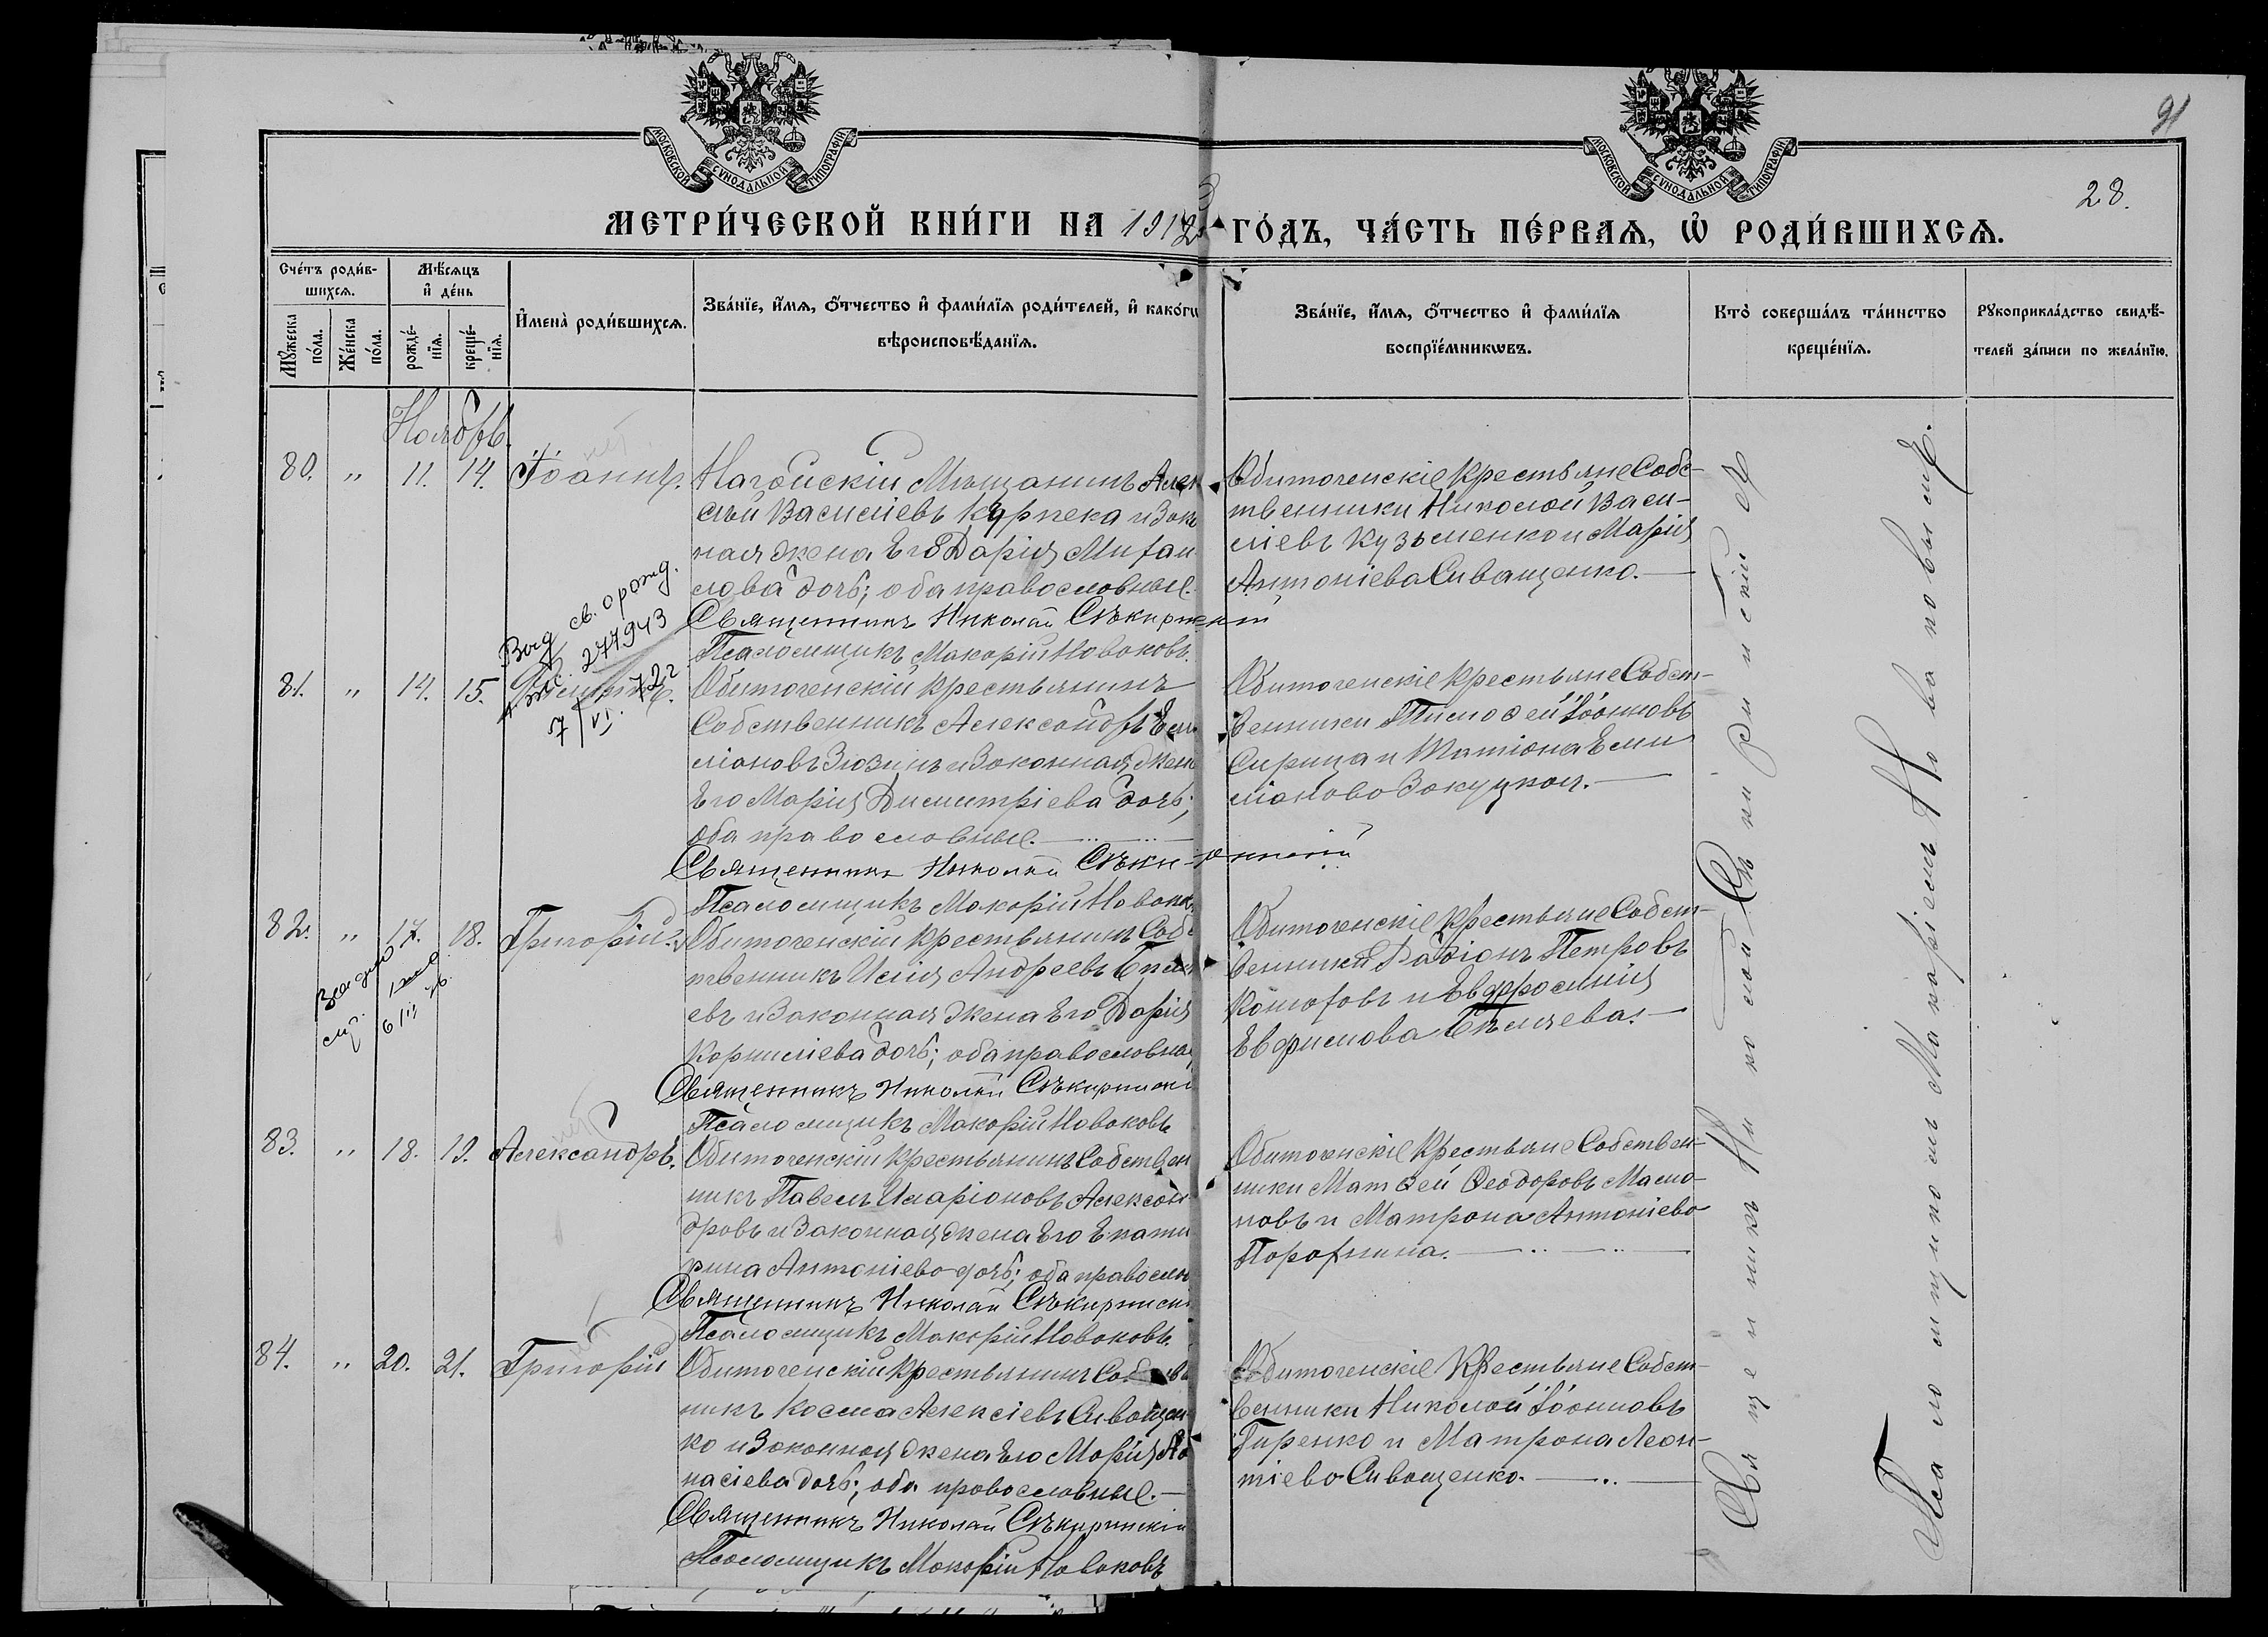 МОСКОВСКОЙ СѴНОДАЛЬНОЙ ТИПОГРАФІИ
МОСКОВСКОЙ СѴНОДАЛЬНОЙ ТИПОГРАФІИ
91
28.
МЕТРИ́ЧЕСКОЙ КНИ́ГИ НА 1913 ГО́ДЪ, ЧА́СТЬ ПЕ́РВАѦ, Ѡ҆ РОДИ́ВШИХСѦ.
Сче́тъ роди́в-
шихсѧ.
Мѣ́сѧцъ
и҆ де́нь
Мꙋ́жеска по́ла.
Же́нска по́ла.
рожде́-
нїѧ.
креще́-
нїѧ.
И҆мена̀ роди́вшихсѧ.
Зва́нїе, и҆́мѧ, ѻ҆́тчество и҆ фами́лїѧ роди́телей, и҆ како́гѡ
вѣроисповѣ́данїѧ.
Зва́нїе, и҆́мѧ, ѻ҆́тчество и҆ фами́лїѧ
воспрїе́мникѡвъ.
Кто̀ соверша́лъ та́инство
креще́нїѧ.
Рꙋкоприкла́дство свидѣ́-
телей за́писи по жела́нїю.
Ноябрь.
80. " 11. 14. Іоаннъ.
Ногайскій Мѣщанинъ Алек
сѣй Василіевъ Курпека и Зако
ная жена Его Дарія Михаи
лова дочь; оба православные.
Священникъ Николай Сѣкиринскій
Псаломщикъ Макарій Новаковъ.
Обиточенскіе Крестьяне Собс-
твенники Николай Васи-
ліевъ Кузьменко и Марія
Антоніева Сиващенко.
Выд св. о рожд.
277943
7/VI. 72г
81. " 14. 15.
Обиточенскій Крестьянинъ
Собственникъ Александръ Еми
ліановъ Зюзинъ и Законная жена
Его Марія Димитріева дочь;
оба православные.
Священникъ Николай Сѣкиринскій
Псаломщикъ Макарій Новаков
Обиточенскіе Крестьяне Собст-
венники Тимоѳей Іоанновъ
Сирица и Татіана Еми
ліанова Закуцкая.
82. " 17. 18. Григорій.
6/III
Обиточенскій Крестьянинъ Соб
твенникъ Илія Андреевъ Бѣля
евъ и Законная жена Его Дарія
Корниліева дочь; оба православны
Священникъ Николай Сѣкирински
Псаломщикъ Макарій Новаковъ
Обиточенскіе Крестьяне Собст-
венники Родіонъ Петровъ
и Евфросинія
Евфимова Бѣляева.
83. " 18. 19. Александръ.
Обиточенскій Крестьянинъ Собствен
никъ Павелъ Иларіоновъ Алексан
дровъ и Законная жена Его Екате
рина Антоніева дочь; оба правосла
Священникъ Николай Сѣкиринск
Псаломщикъ Макарій Новаковъ.
Обиточенскіе Крестьяне Собствен-
ники Матѳей Ѳеодоровъ Масло-
новъ и Матрона Антоніева
84. " 20. 21. Григорій
Обиточенскій Крестьянинъ Собств
никъ Косма Алексіевъ Сиващен
ко и Законная жена Его Марія Аѳа
насіева дочь; оба православные.
Священникъ Николай Сѣкиринскій
Псаломщикъ Макарій Новаковъ
Обиточенскіе Крестьяне Собст-
венники Николай Іоанновъ
Гиренко и Матрона Леон-
тіева Сиващенко.
Священникъ Николай Сѣкиринскій съ
Псаломщикомъ Макаріемъ Новаковымъ.